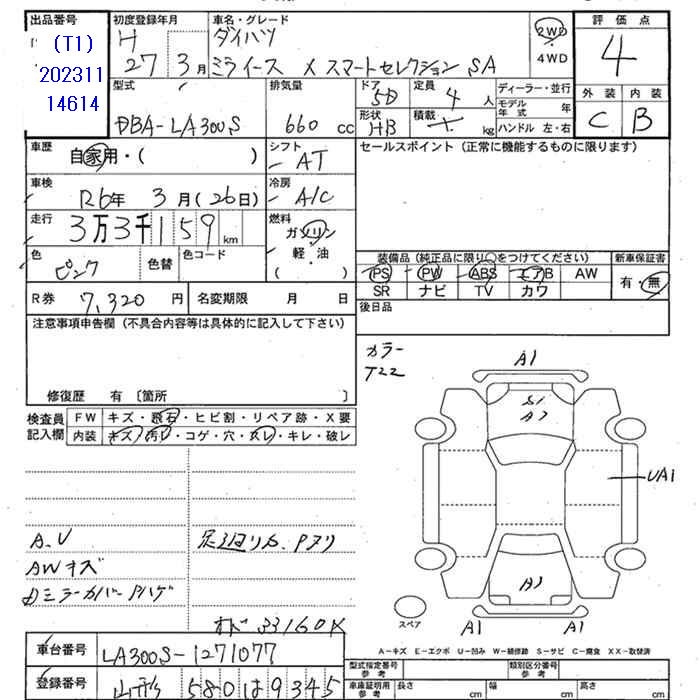 出品番号
(T1)
202311
14614
初度登録年月
H
27 3月
車名・グレード
ダイハツ
ミライース X スマートセレクション SA
2WD
・
4WD
評価点
4
外装 内装
C B
型式
DBA-LA300S
排気量
660 cc
ドア
5D
形状
HB
定員
4 人
積載
kg
ディーラー・並行
モデル年式 年
ハンドル 左・右
車歴
自家用・( )
シフト
AT
セールスポイント(正常に機能するものに限ります)
車検
R6年 3月(26日)
冷房
A/C
走行
3万3千159km
燃料
ガソリン
・
軽・油
( )
色
ピンク
色替
色コード
装備品(純正品に限り○をつけてください)
PS PW ABS エアB AW
SR ナビ TV カワ
新車保証書
有・無
R券 7,320円
名変期限 月 日
後日品
注意事項申告欄(不具合内容等は具体的に記入して下さい)
修復歴 有〔箇所 〕
カラー
T22
検査員
記入欄
FW キズ・飛石・ヒビ割・リペア跡・X要
内装 キズ・汚レ・コゲ・穴・スレ・キレ・破レ
A1
S1
A2
UA1
A.U
AWキズ
A1
A1 A1
スペア
オド 33160K
A−キズ E−エクボ U−凹み W−補修跡 S−サビ C−腐食 XX−取替済
車台番号
LA300S-1271077
登録番号
山形 580は9345
型式指定番号
参考
類別区分番号
参考
車庫証明用
参考
長さ cm 幅 cm 高さ cm